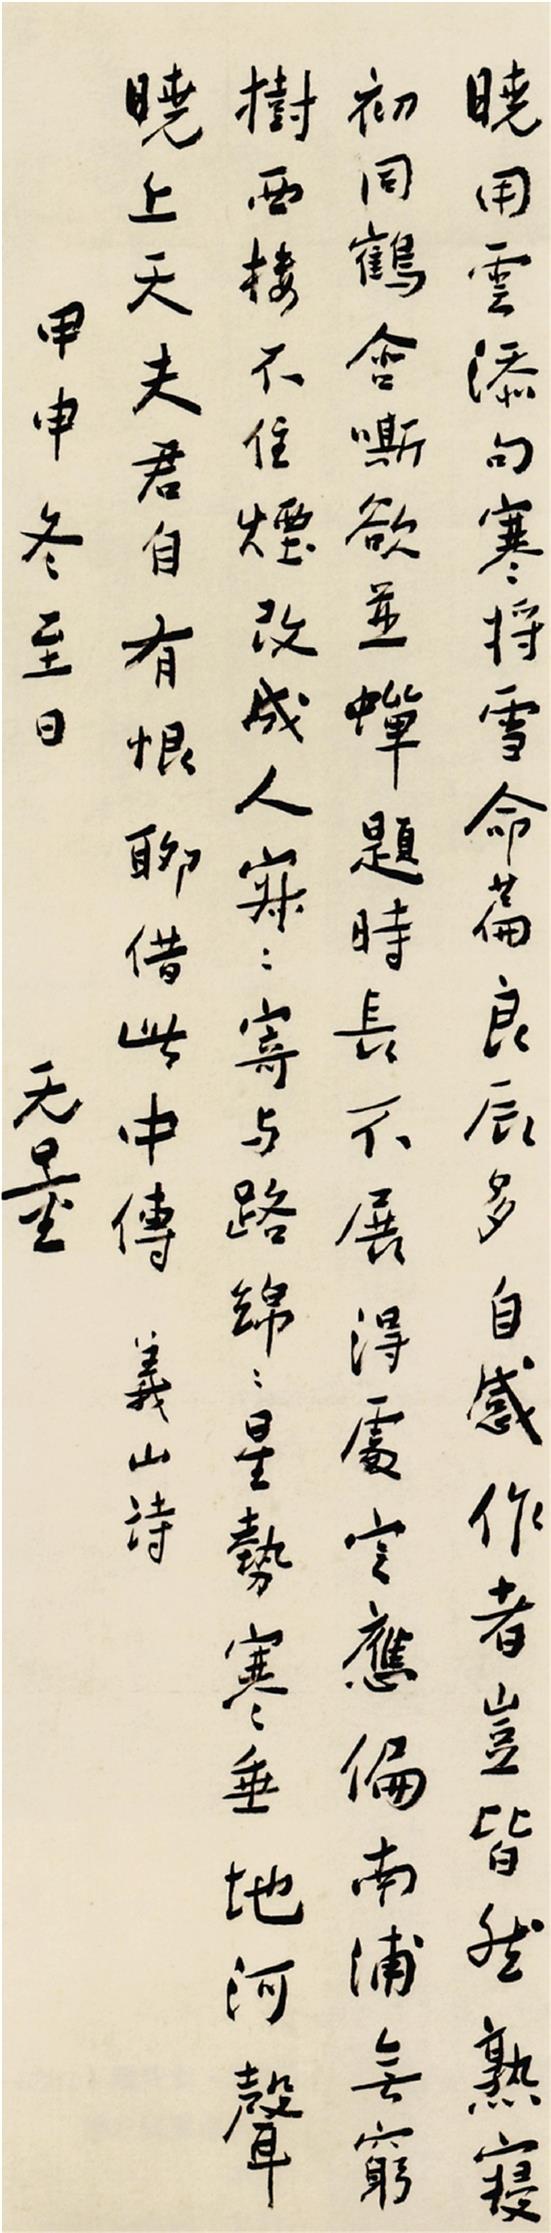 曉用雲添句寒將雪命篇良辰多自感作者豈皆然熟寢
初同鶴含嘶欲並蟬題時長不展得處定應偏南浦無窮
樹西樓不住煙改成人寂〻寄与路綿〻星勢寒〻垂地河聲
曉上天夫君自有恨聊借此中傳 義山詩
甲申冬至日 无量